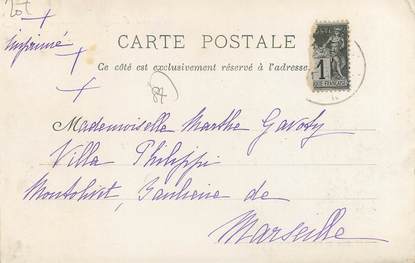 20t
Imprimé
CARTE POSTALE
Ce côté est exclusivement réservé à l'adresse.
84
1
QUE FRANÇAISE
Mademoiselle Marthe Gavoty
Villa Philippi
Montolivet, Banlieue de
Marseille